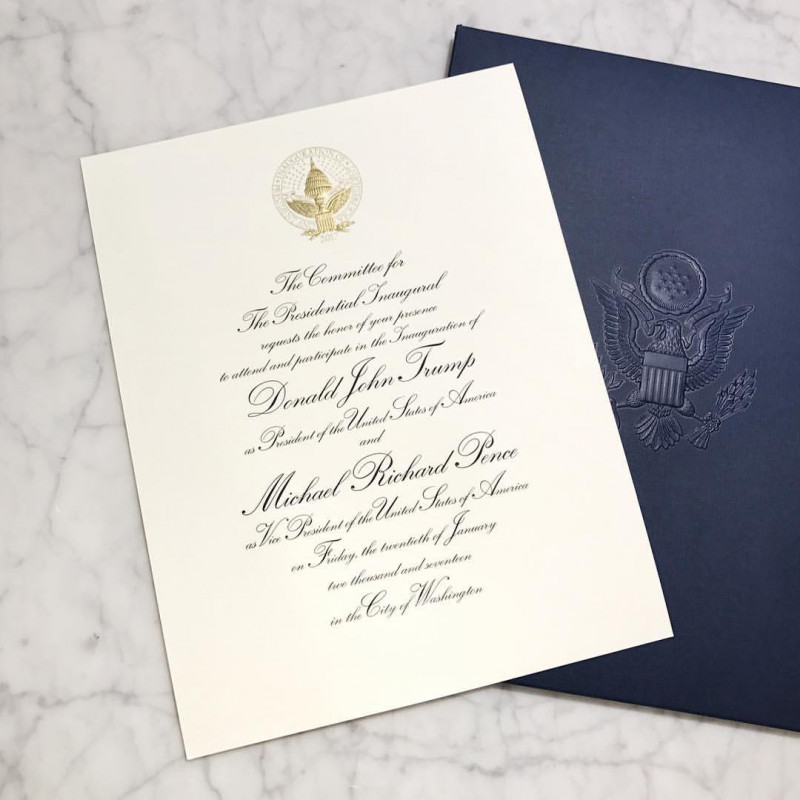 INAUGURATION OF
2017
The Committee for
The Presidential Inaugural
requests the honor of your presence
to attend and participate in the Inauguration of
Donald John Trump
as President of the United States of America
and
Michael Richard Pence
as Vice President of the United States of America
on Friday, the twentieth of January
two thousand and seventeen
in the City of Washington